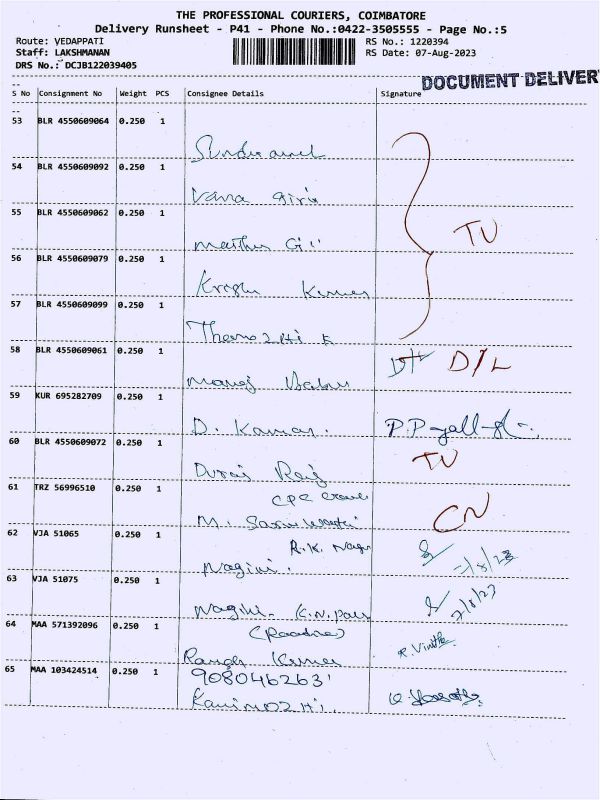 THE PROFESSIONAL COURIERS, COIMBATORE
Delivery Runsheet - P41 - Phone No.:0422-3505555 - Page No.:5
Route: VEDAPPATI RS No.: 1220394
Staff: LAKSHMANAN RS Date: 07-Aug-2023
DRS No.: DCJB122039405
DOCUMENT DELIVER
S No Consignment No Weight PCS Consignee Details Signature
53 BLR 4550609064 0.250 1
54 BLR 4550609092 0.250 1
Vana Giri
55 BLR 4550609062 0.250 1
TV
56 BLR 4550609079 0.250 1
Kumar
57 BLR 4550609099 0.250 1
58 BLR 4550609061 0.250 1
D/L
Manoj Babu
59 KUR 695282709 0.250 1
D. Kumar.
60 BLR 4550609072 0.250 1
TV
Durai Raj
61 TRZ 56996510 0.250 1
CPC
CN
M.
62 VJA 51065 0.250 1
R.K. Nagar
7/8/23
Nagini.
63 VJA 51075 0.250 1
7/8/23
Nagini.
64 MAA 571392096 0.250 1
R. Vinith
Kumar
65 MAA 103424514 0.250 1
9080462631
Kanimozhi.